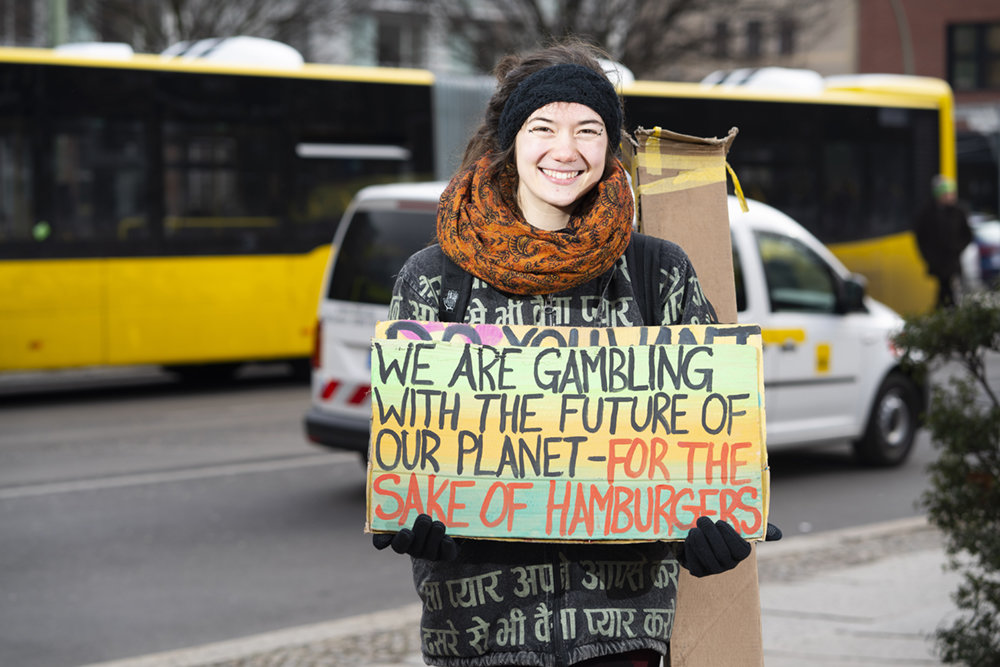 DO YOU WANT
WE ARE GAMBLING
WITH THE FUTURE OF
OUR PLANET - FOR THE
SAKE OF HAMBURGERS
प्यार
आपसे करो
दूसरे से भी वैसा प्यार करो